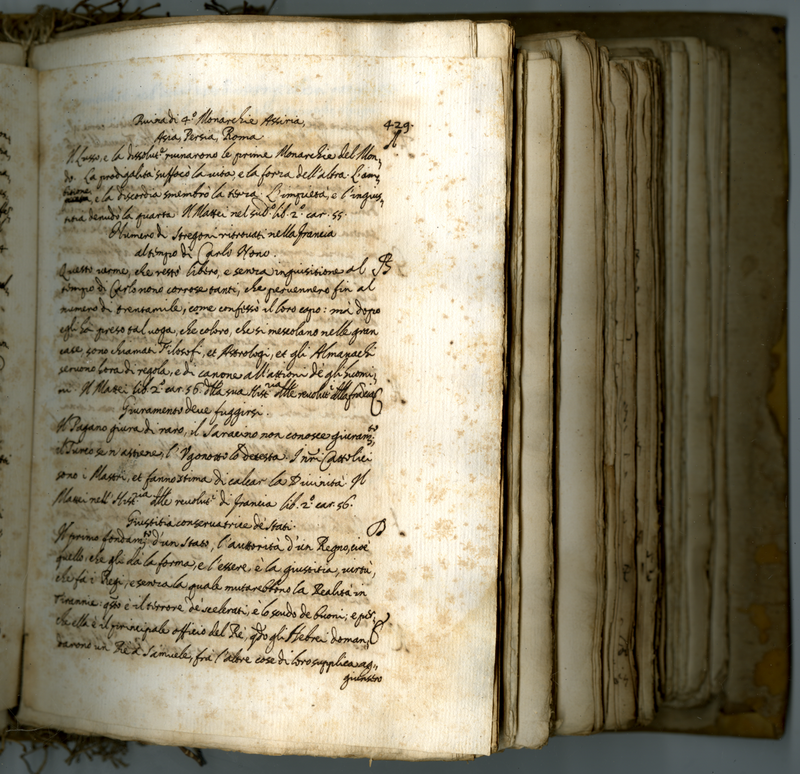 429.
Ruina di 4.º Monarchie Assiria,
Asia, Persia, Roma
A
Il Lusso, e la dissolut.ne ruinarono le prime Monarchie del Mon,
do. La prodigalità suffocò la vita, e la forza dell'altra. L'am,
bitione, e la discordia smembrò la terza. L'impietà, e l'ingius,
titia denudò la quarta. Il Mattei nel sud.º lib. 2.º car. 55.
Numero di Stregoni ritrovati nella francia
al tempo di Carlo Nono.
B
Questo verme, che restò libero, e senza inquisitione al
tempo di Carlo nono corrose tanti, che pervennero fin al
numero di trentamila, come confessò il loro capo: mà dopo
egli hà preso tal voga, che coloro, che si mescolano nelle gran
case, sono chiamati Filosofi, et Astrologi, et gli Almanachi
servono hora di regola, e di canone all'attioni de gli huomi,
ni. Il Mattei lib. 2.º car. 56. della sua Hist.ria delle revolut.i della francia
C
Giuramento deve fuggirsi.
Il Pagano giura di raro, il Saracino non conosce giuram.to,
il Turco se n'astiene, l'Vgonotto lo detesta. I nr̃i Cattolici
sono i Mastri, et fanno stima di calcar la Divinità. Il
Mattei nell'Hist.ria delle revolut.i di francia lib. 2.º car. 56.
Giustitia conservatrice de Stati.
D
Il primo fondam.to d'un Stato, l'autorità d'un Regno, cioè
quello, che gli dà la forma, e l'essere, è la giustitia, virtù,
che fà i Regi, e senza la quale mutarebbono la Realità in
Tirannie: q̃sto è il terrore de' scelerati, e lo scudo de buoni; e per,
che ella è il principale officio del Rè, q̃do gli Hebrei doman,
darono un Rè à Samuele, frà l'altre cose di loro supplica ag,,
giunsero